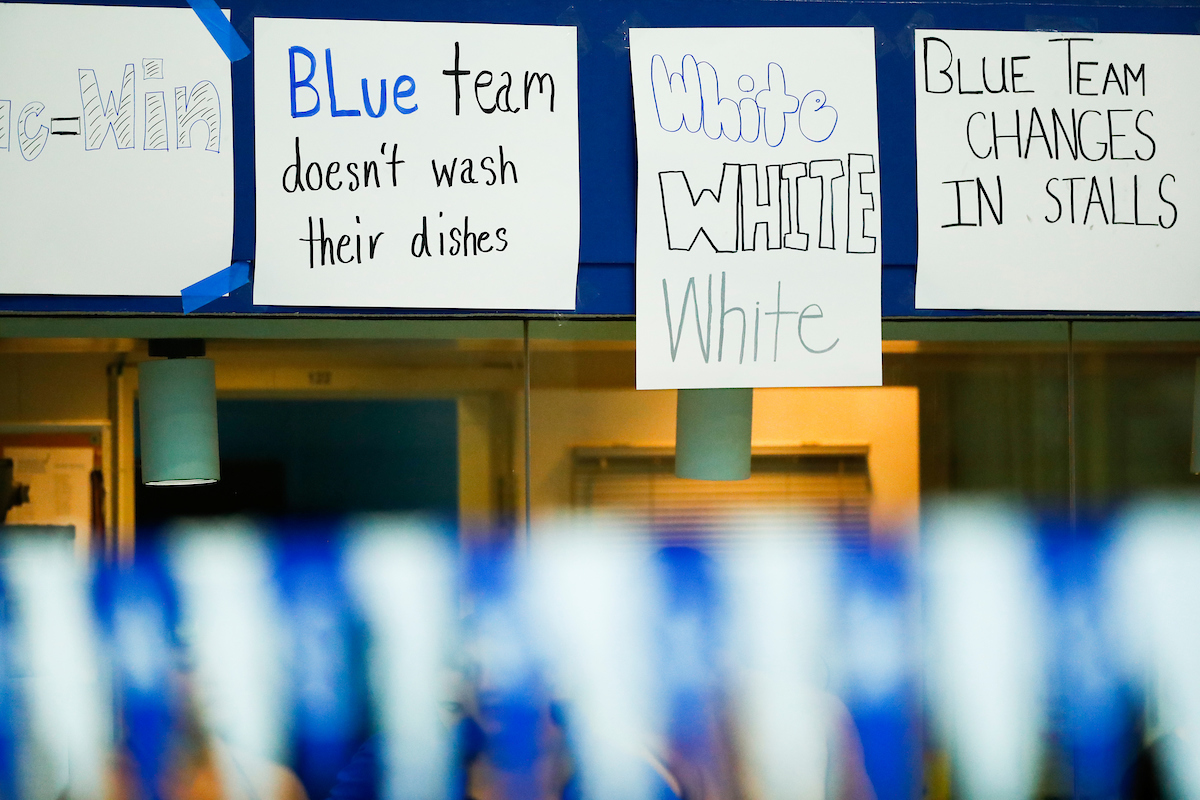 ic=Win
BLue team
doesn't wash
their dishes
White
WHITE
White
BLUE TEAM
CHANGES
IN STALLS
122